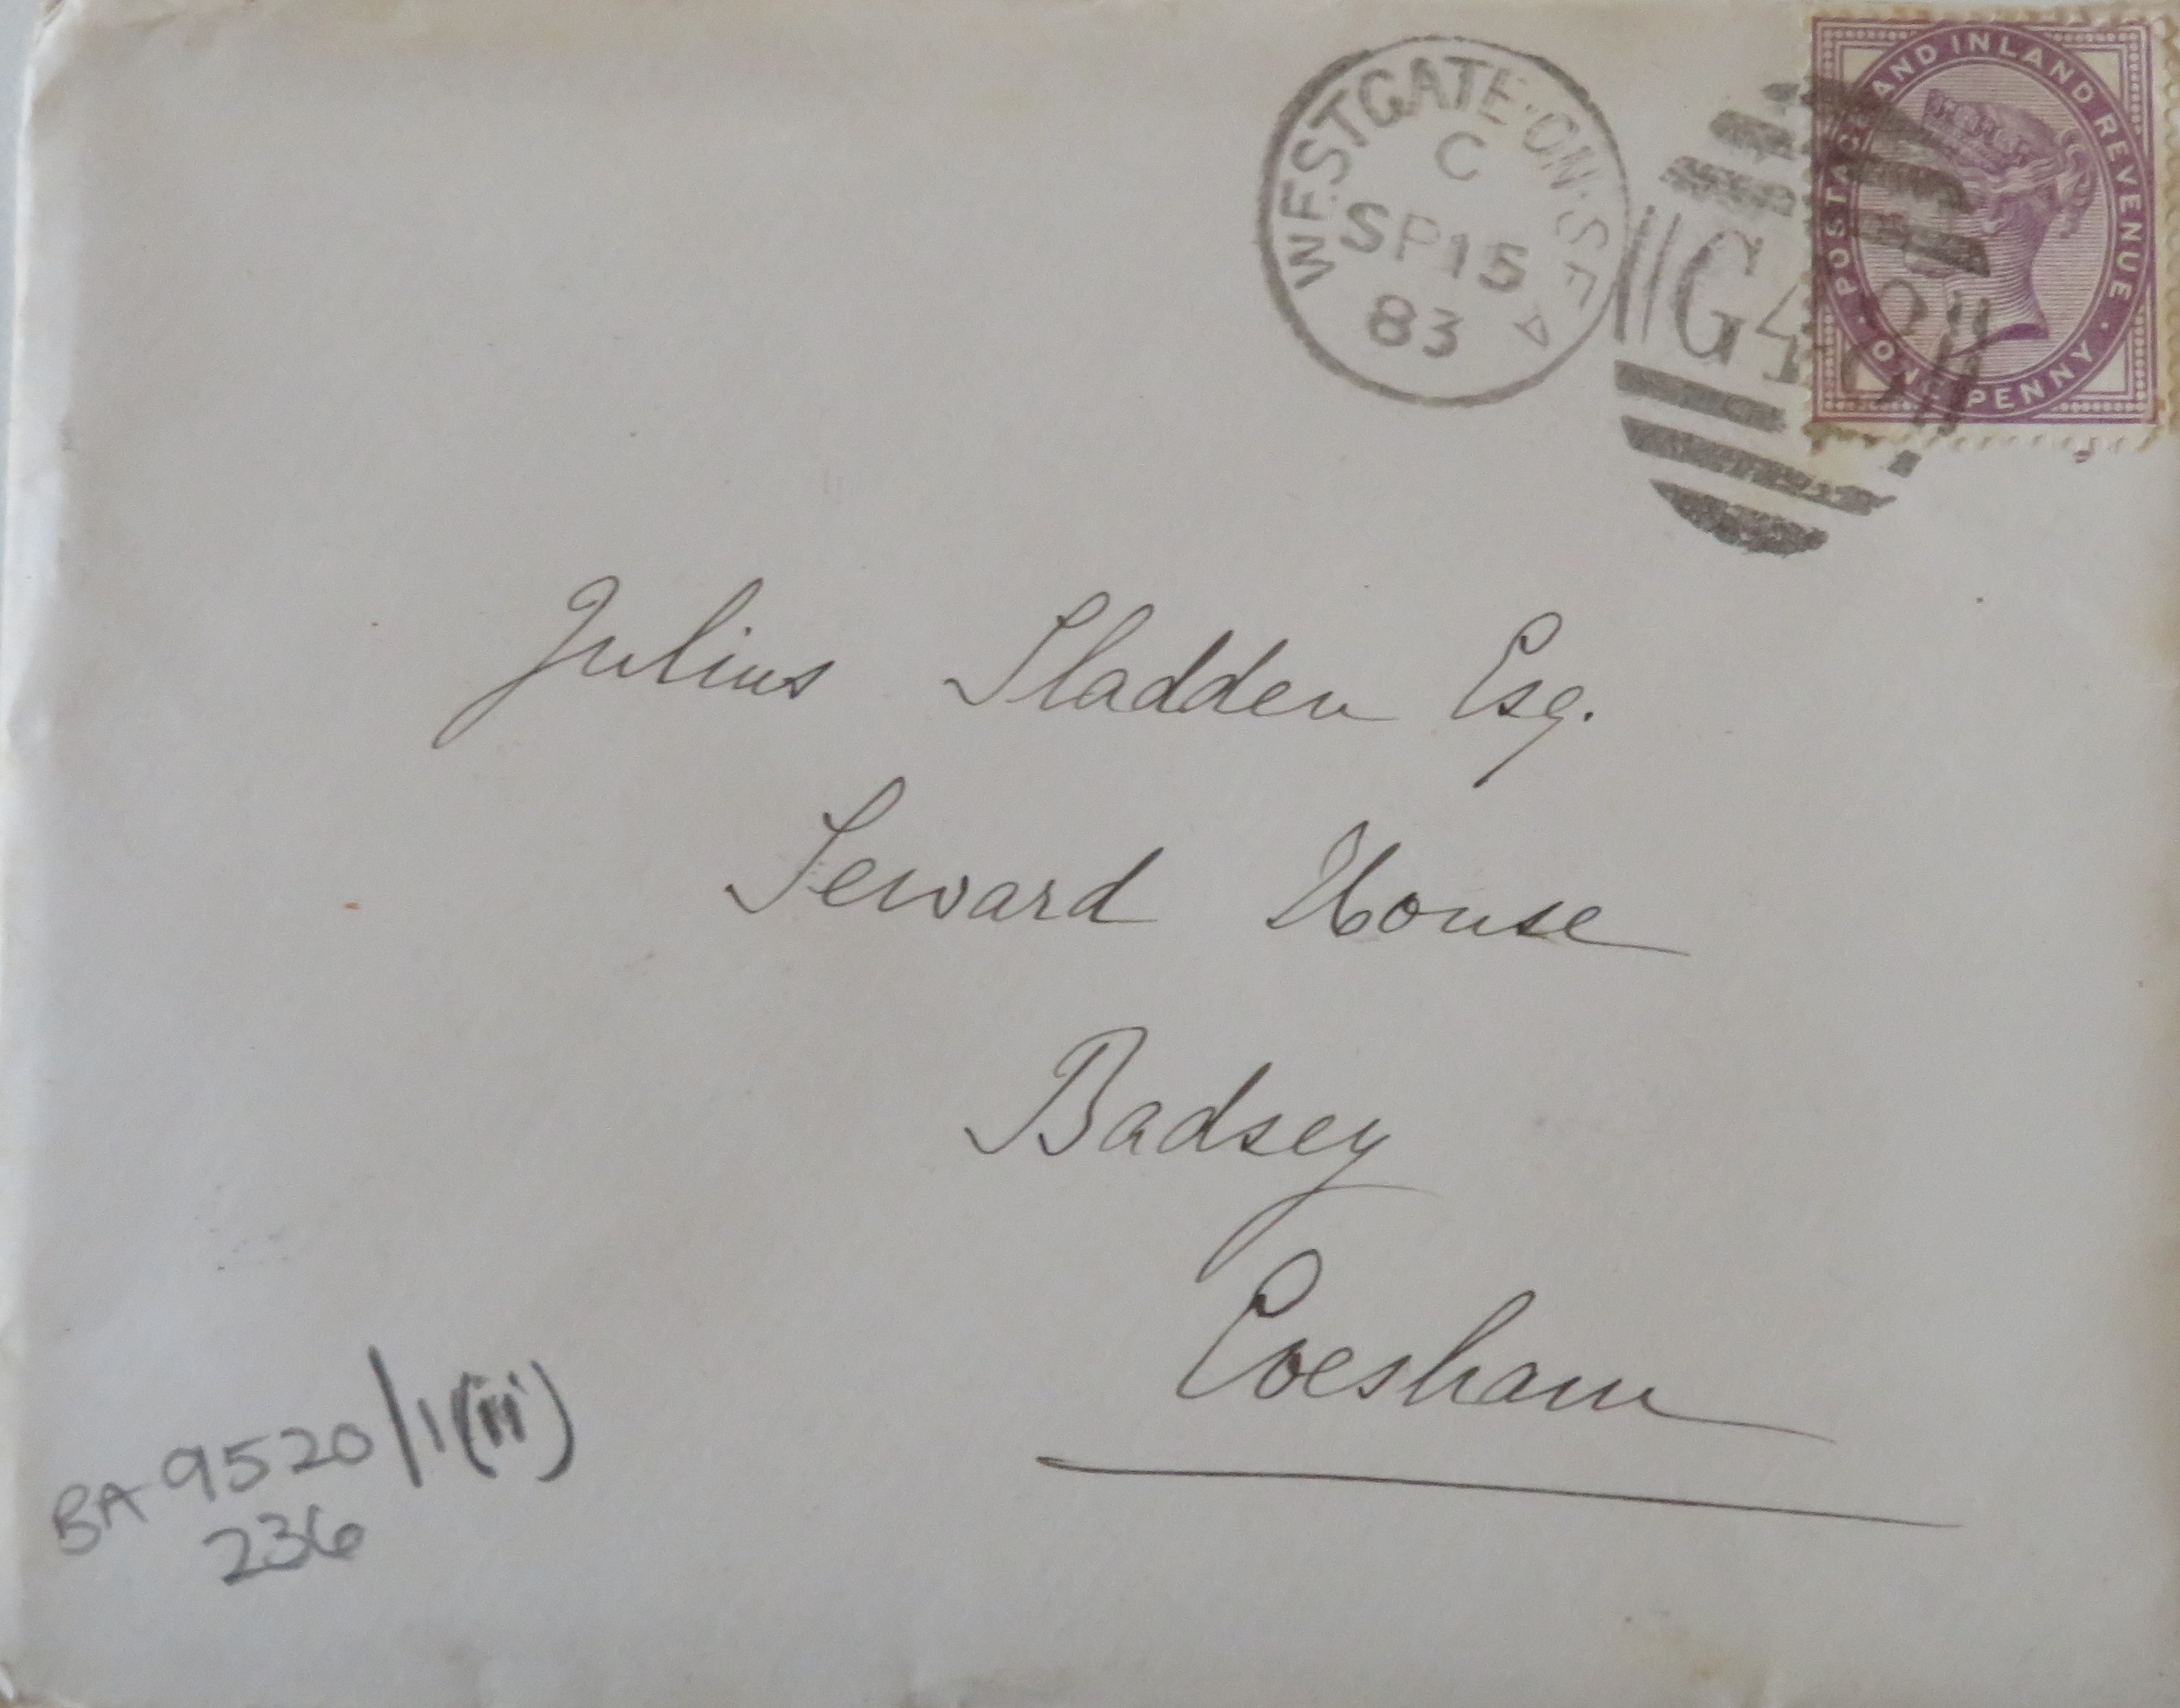 WESTGATE·ON·SEA
C
SP15
83
G4
POSTAGE AND INLAND REVENUE · ONE PENNY ·
Julius Sladden Esq.
Seward House
Badsey
Evesham
BA 9520/1(iii)
236